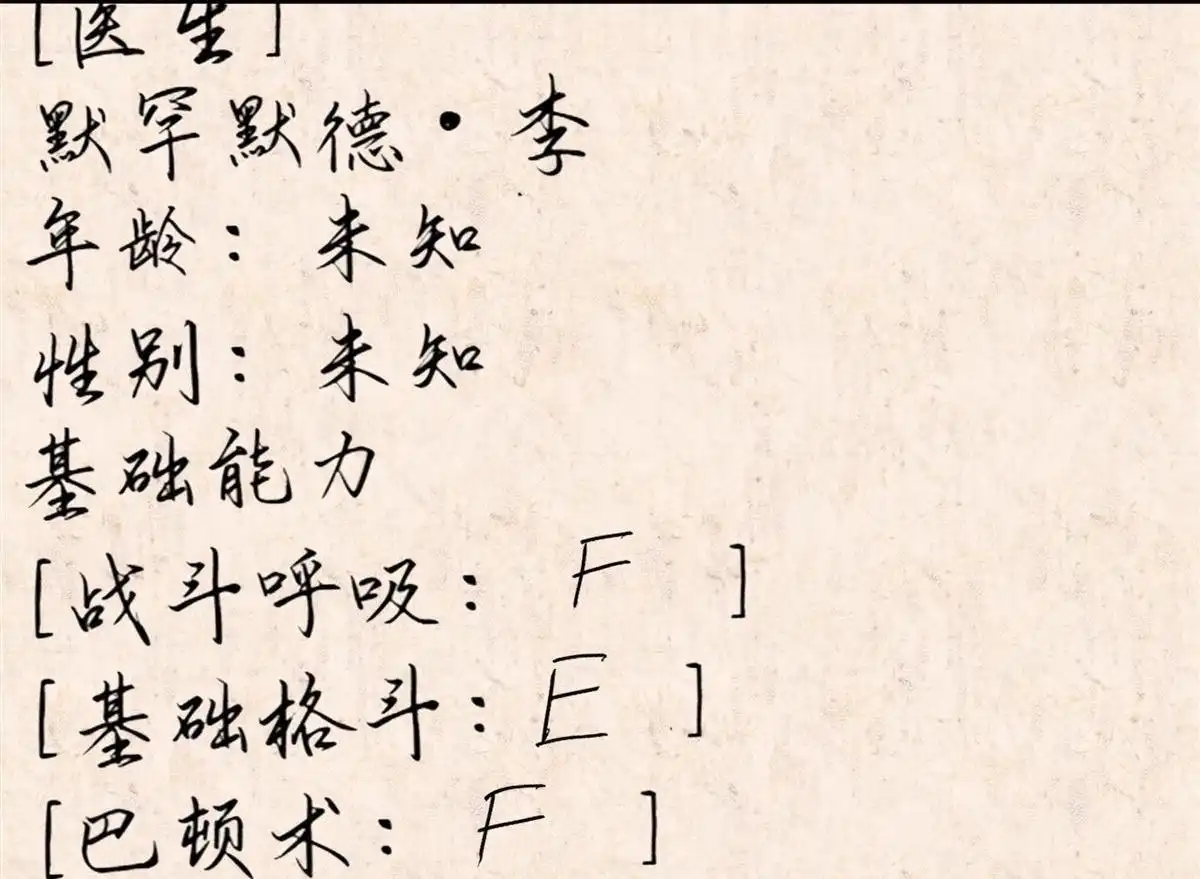 [医生]
默罕默德·李
年龄：未知
性别：未知
基础能力
[战斗呼吸：F]
[基础格斗：E]
[巴顿术：F]